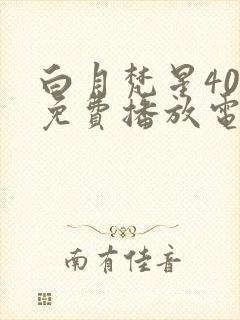 白月梵星40
免費播放電
南有佳音